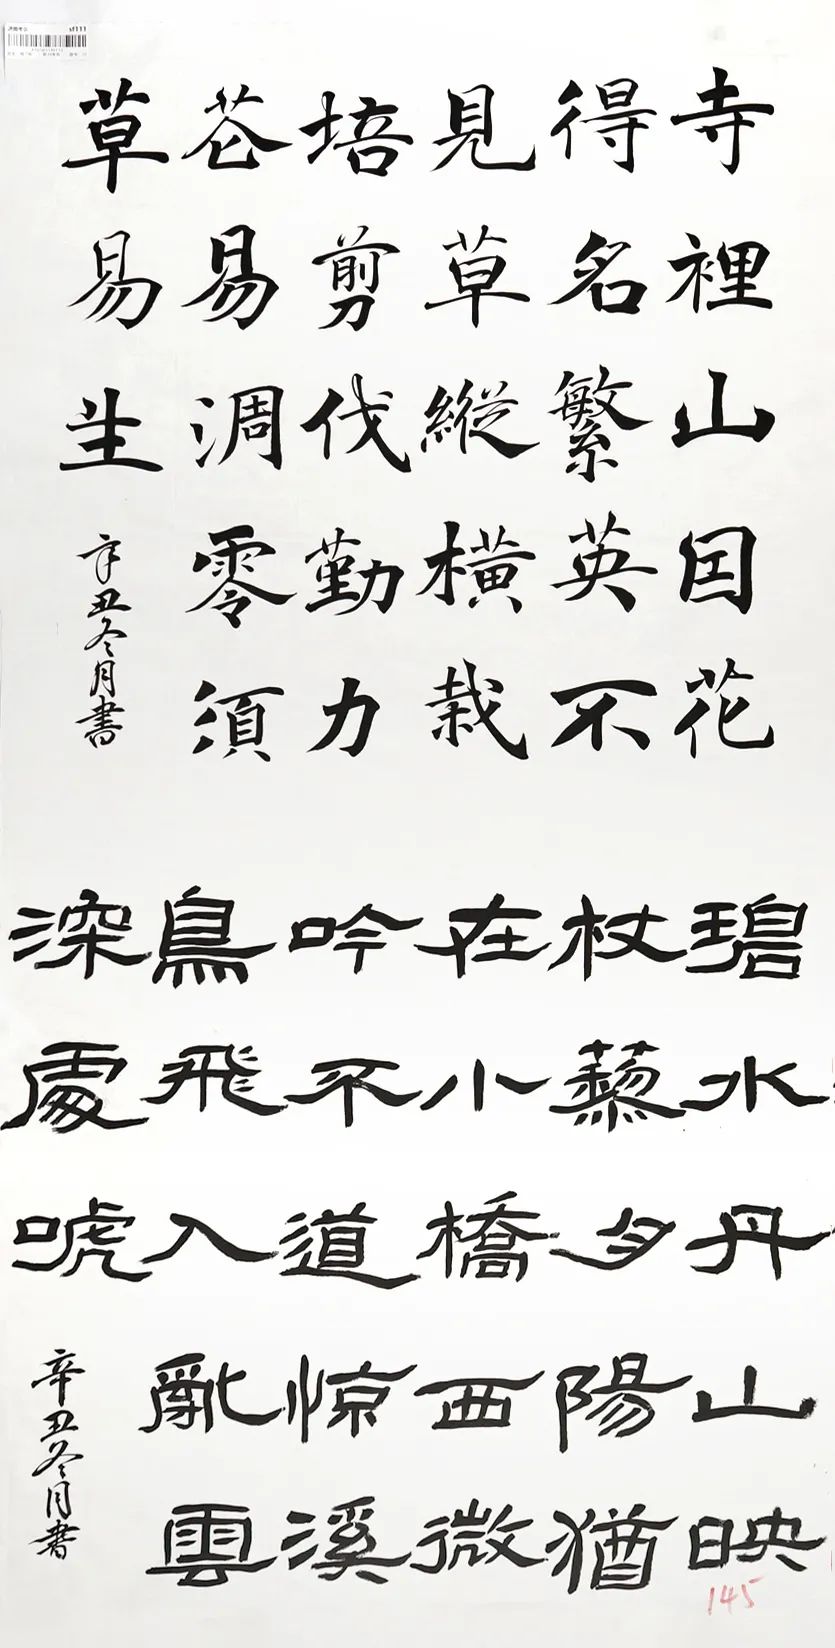 sf111
寺裡山囙花
得名繁英不
見草縱橫栽
培剪伐勤力
芲易淍零須
草易生
辛丑冬月書
碧水丹山映
杖藜夕陽猶
在小橋西微
吟不道惊溪
鳥飛入亂雲
深處唬
辛丑冬月書
145